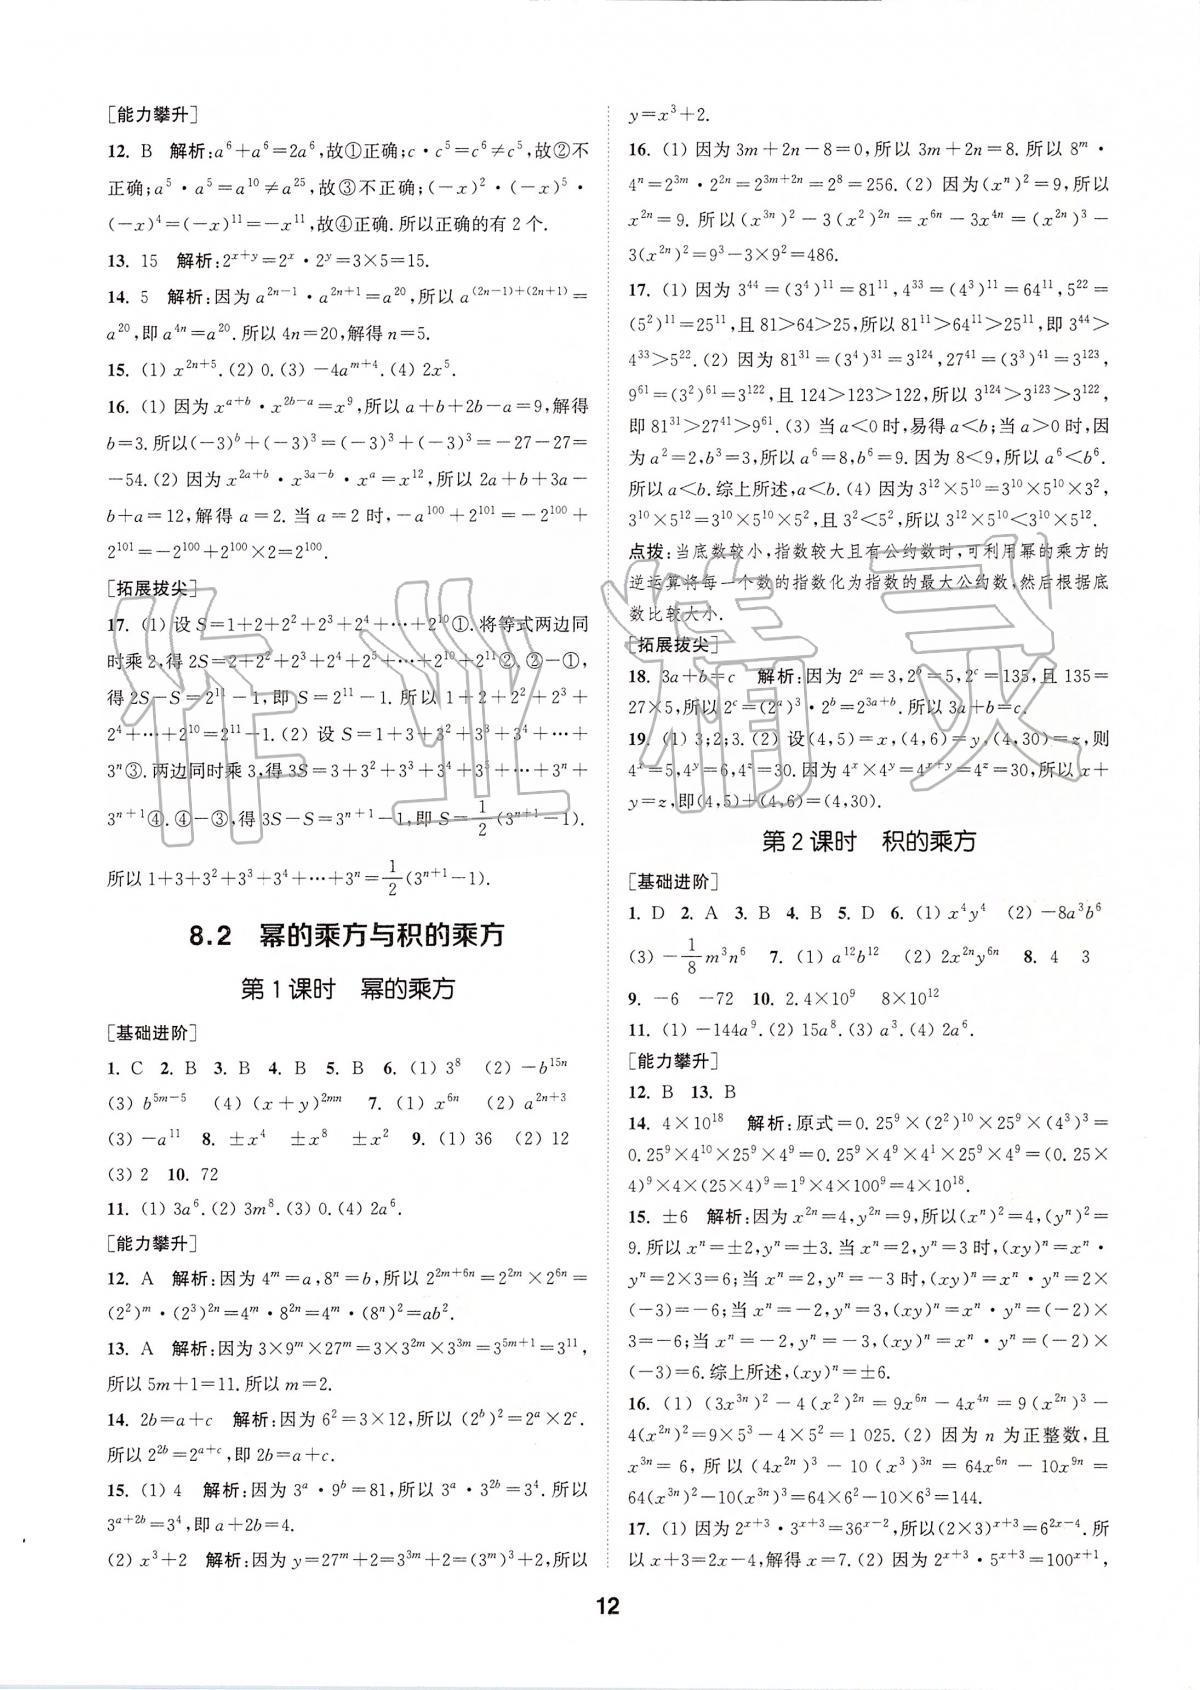 [能力攀升]
12. B 解析:a⁶+a⁶=2a⁶,故①正确;c·c⁵=c⁶≠c⁵,故②不
正确;a⁵·a⁵=a¹⁰≠a²⁵,故③不正确;(-x)²·(-x)⁵·
(-x)⁴=(-x)¹¹=-x¹¹,故④正确.所以正确的有 2 个.
13. 15 解析:2^{x+y}=2^x·2^y=3×5=15.
14. 5 解析:因为 a^{2n-1}·a^{2n+1}=a²⁰,所以 a^{(2n-1)+(2n+1)}=
a²⁰,即 a^{4n}=a²⁰.所以 4n=20,解得 n=5.
15. (1) x^{2n+5}.(2) 0.(3) -4a^{m+4}.(4) 2x⁵.
16. (1) 因为 x^{a+b}·x^{2b-a}=x⁹,所以 a+b+2b-a=9,解得
b=3.所以(-3)^b+(-3)³=(-3)³+(-3)³=-27-27=
-54.(2) 因为 x^{2a+b}·x^{3a-b}·x^a=x¹²,所以 2a+b+3a-
b+a=12,解得 a=2.当 a=2 时,-a¹⁰⁰+2¹⁰¹=-2¹⁰⁰+
2¹⁰¹=-2¹⁰⁰+2¹⁰⁰×2=2¹⁰⁰.
[拓展拔尖]
17. (1) 设 S=1+2+2²+2³+2⁴+…+2¹⁰①.将等式两边同
时乘 2,得 2S=2+2²+2³+2⁴+2⁵+…+2¹⁰+2¹¹②.②-①,
得 2S-S=2¹¹-1,即 S=2¹¹-1.所以 1+2+2²+2³+
2⁴+…+2¹⁰=2¹¹-1.(2) 设 S=1+3+3²+3³+3⁴+…+
3ⁿ③.两边同时乘 3,得 3S=3+3²+3³+3⁴+…+3ⁿ+
3^{n+1}④.④-③,得 3S-S=3^{n+1}-1,即 S=1/2(3^{n+1}-1).
所以 1+3+3²+3³+3⁴+…+3ⁿ=1/2(3^{n+1}-1).
8.2 幂的乘方与积的乘方
第 1 课时 幂的乘方
[基础进阶]
1. C 2. B 3. B 4. B 5. B 6. (1) 3⁸ (2) -b^{15n}
(3) b^{5m-5} (4) (x+y)^{2mn} 7. (1) x^{6n} (2) a^{2n+3}
(3) -a¹¹ 8. ±x⁴ ±x⁸ ±x² 9. (1) 36 (2) 12
(3) 2 10. 72
11. (1) 3a⁶.(2) 3m⁸.(3) 0.(4) 2a⁶.
[能力攀升]
12. A 解析:因为 4^m=a,8ⁿ=b,所以 2^{2m+6n}=2^{2m}×2^{6n}=
(2²)^m·(2³)^{2n}=4^m·8^{2n}=4^m·(8ⁿ)²=ab².
13. A 解析:因为 3×9^m×27^m=3×3^{2m}×3^{3m}=3^{5m+1}=3¹¹,
所以 5m+1=11.所以 m=2.
14. 2b=a+c 解析:因为 6²=3×12,所以 (2^b)²=2^a×2^c.
所以 2^{2b}=2^{a+c},即 2b=a+c.
15. (1) 4 解析:因为 3^a·9^b=81,所以 3^a·3^{2b}=3⁴.所以
3^{a+2b}=3⁴,即 a+2b=4.
(2) x³+2 解析:因为 y=27^m+2=3^{3m}+2=(3^m)³+2,所以
y=x³+2.
16. (1) 因为 3m+2n-8=0,所以 3m+2n=8.所以 8^m·
4ⁿ=2^{3m}·2^{2n}=2^{3m+2n}=2⁸=256.(2) 因为(xⁿ)²=9,所以
x^{2n}=9.所以(x^{3n})²-3(x²)^{2n}=x^{6n}-3x^{4n}=(x^{2n})³-
3(x^{2n})²=9³-3×9²=486.
17. (1) 因为 3⁴⁴=(3⁴)¹¹=81¹¹,4³³=(4³)¹¹=64¹¹,5²²=
(5²)¹¹=25¹¹,且 81>64>25,所以 81¹¹>64¹¹>25¹¹,即 3⁴⁴>
4³³>5²².(2) 因为 81³¹=(3⁴)³¹=3¹²⁴,27⁴¹=(3³)⁴¹=3¹²³,
9⁶¹=(3²)⁶¹=3¹²²,且 124>123>122,所以 3¹²⁴>3¹²³>3¹²²,
即 81³¹>27⁴¹>9⁶¹.(3) 当 a<0 时,易得 a<b;当 a>0 时,因
为 a²=2,b³=3,所以 a⁶=8,b⁶=9.因为 8<9,所以 a⁶<b⁶.
所以 a<b.综上所述,a<b.(4) 因为 3¹²×5¹⁰=3¹⁰×5¹⁰×3²,
3¹⁰×5¹²=3¹⁰×5¹⁰×5²,且 3²<5²,所以 3¹²×5¹⁰<3¹⁰×5¹².
点拨:当底数较小,指数较大且有公约数时,可利用幂的乘方的
逆运算将每一个数的指数化为指数的最大公约数,然后根据底
数比较大小.
[拓展拔尖]
18. 3a+b=c 解析:因为 2^a=3,2^b=5,2^c=135,且 135=
27×5,所以 2^c=(2^a)³·2^b=2^{3a+b}.所以 3a+b=c.
19. (1) 3;2;3.(2) 设(4,5)=x,(4,6)=y,(4,30)=z,则
4^x=5,4^y=6,4^z=30.因为 4^x×4^y=4^{x+y}=4^z=30,所以 x+
y=z,即(4,5)+(4,6)=(4,30).
第 2 课时 积的乘方
[基础进阶]
1. D 2. A 3. B 4. B 5. D 6. (1) x⁴y⁴ (2) -8a³b⁶
(3) -1/8m³n⁶ 7. (1) a¹²b¹² (2) 2x^{2n}y^{6n} 8. 4 3
9. -6 -72 10. 2.4×10⁹ 8×10¹²
11. (1) -144a⁹.(2) 15a⁸.(3) a³.(4) 2a⁶.
[能力攀升]
12. B 13. B
14. 4×10¹⁸ 解析:原式=0.25⁹×(2²)¹⁰×25⁹×(4³)³=
0.25⁹×4¹⁰×25⁹×4⁹=0.25⁹×4⁹×4¹×25⁹×4⁹=(0.25×
4)⁹×4×(25×4)⁹=1⁹×4×100⁹=4×10¹⁸.
15. ±6 解析:因为 x^{2n}=4,y^{2n}=9,所以(xⁿ)²=4,(yⁿ)²=
9.所以 xⁿ=±2,yⁿ=±3.当 xⁿ=2,yⁿ=3 时,(xy)ⁿ=xⁿ·
yⁿ=2×3=6;当 xⁿ=2,yⁿ=-3 时,(xy)ⁿ=xⁿ·yⁿ=2×
(-3)=-6;当 xⁿ=-2,yⁿ=3,(xy)ⁿ=xⁿ·yⁿ=(-2)×
3=-6;当 xⁿ=-2,yⁿ=-3,(xy)ⁿ=xⁿ·yⁿ=(-2)×
(-3)=6.综上所述,(xy)ⁿ=±6.
16. (1) (3x^{3n})²-4(x²)^{2n}=9x^{6n}-4x^{4n}=9(x^{2n})³-
4(x^{2n})²=9×5³-4×5²=1 025.(2) 因为 n 为正整数,且
x^{3n}=6,所以(4x^{2n})³-10(x³)^{3n}=64x^{6n}-10x^{9n}=
64(x^{3n})²-10(x^{3n})³=64×6²-10×6³=144.
17. (1) 因为 2^{x+3}·3^{x+3}=36^{x-2},所以(2×3)^{x+3}=6^{2x-4}.所
以 x+3=2x-4,解得 x=7.(2) 因为 2^{x+3}·5^{x+3}=100^{x+1},
12
作业精灵